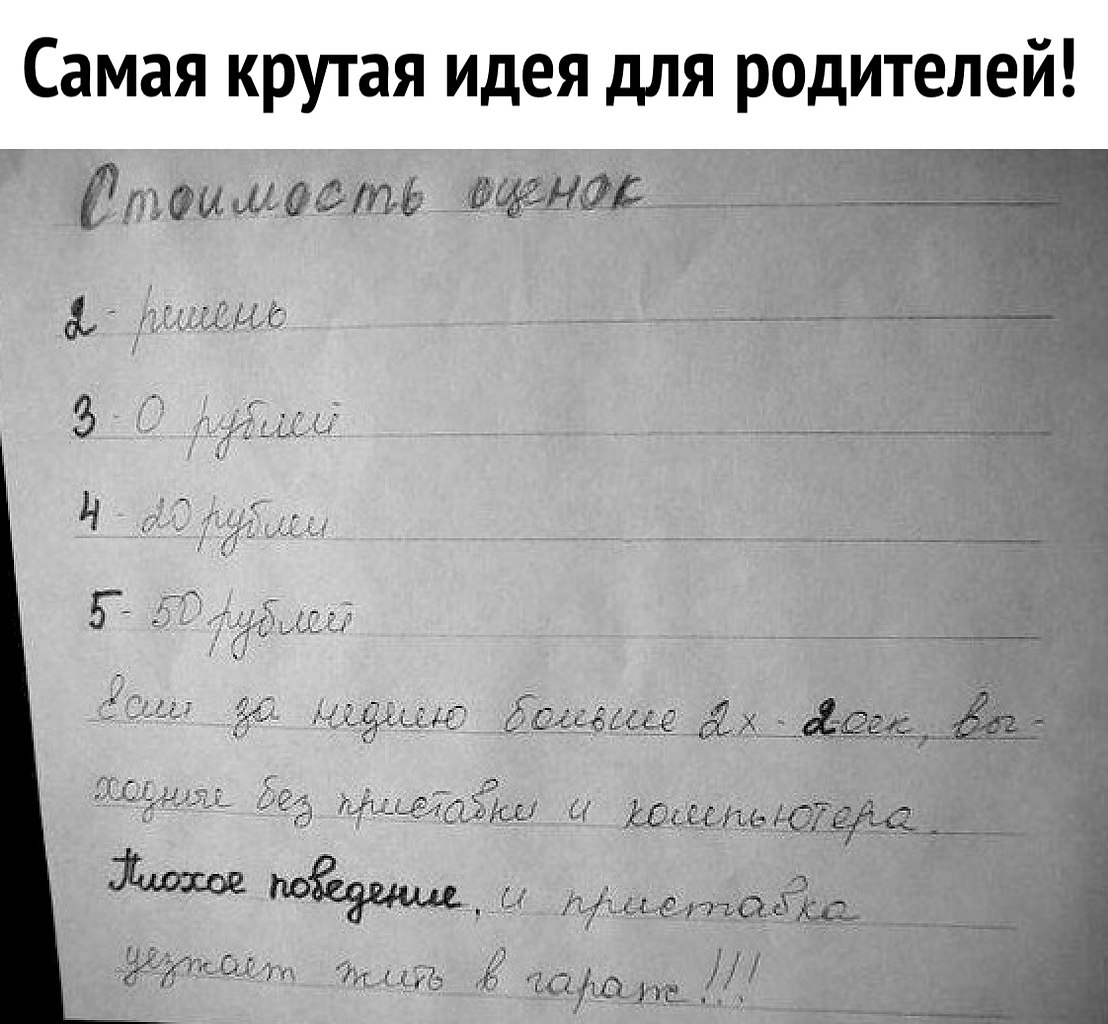 Самая крутая идея для родителей!
Стоимость оценок
2 - ремень
3 - 0 рублей
4 - 20 рублей
5 - 50 рублей
Если за неделю больше 2х - 2оек, вы-
ходные без приставки и компьютера.
Плохое поведение, и приставка
уезжает жить в гараж!!!